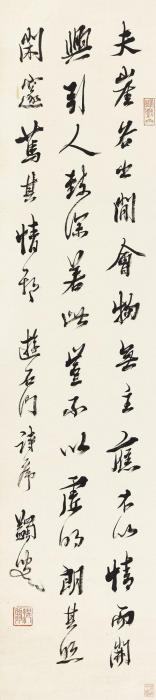 夫崖谷之間會物無主應不以情而開
興引人致深若此豈不以虛明朗其照
閑邃篤其情耶 遊石門詩序 蠲叟